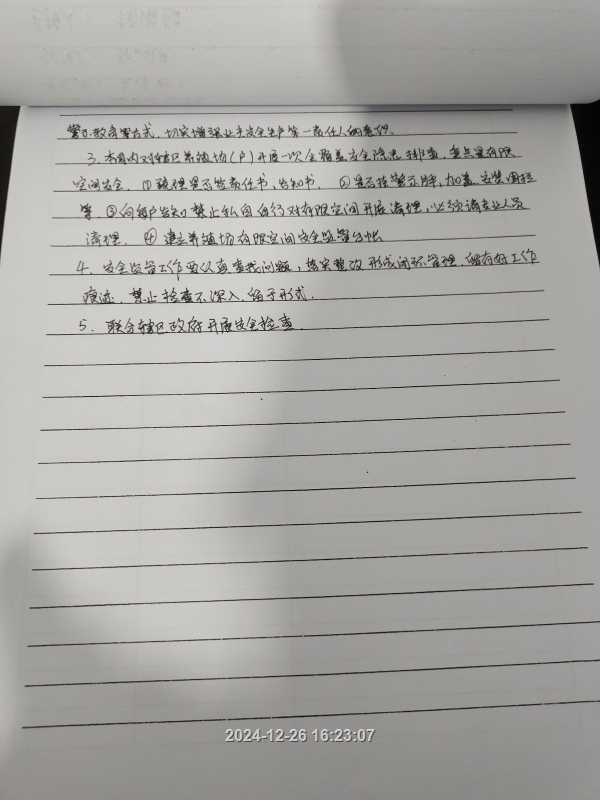 警示教育等方式,切实增强业主安全生产第一责任人的意识。
3、本周内对辖区养殖场(户)开展一次全覆盖安全隐患排查,重点是有限
空间安全。①梳理是否签责任书,告知书。②是否挂警示牌,加盖,安装围栏
等。③向每户告知禁止私自自行对有限空间开展清理,必须请专业人员
清理。④建立养殖场有限空间安全监管台帐
4、安全监管工作要认真查找问题,落实整改形成闭环管理,留存好工作
痕迹,禁止检查不深入,流于形式。
5、联合辖区政府开展安全检查。
2024-12-26 16:23:07